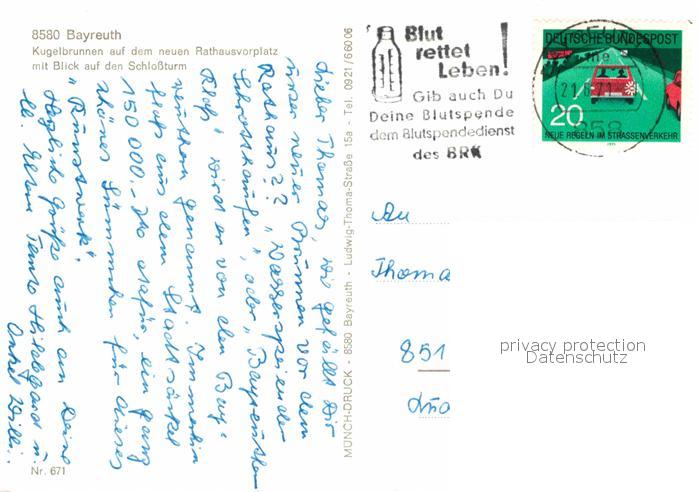 8580 Bayreuth
Kugelbrunnen auf dem neuen Rathausvorplatz
mit Blick auf den Schloßturm
Lieber Thomas, wie gefällt Dir
unser neuer Brunnen vor dem
Rathaus?? "Wasserspeiender
Schrotthaufen", oder "Bayreuther
" wird er von den Bay-
reuthern genannt. Immerhin
aus dem Stadtsäckel
150 000.- DM dafür, ein ganz
schönes Sümmchen für dieses
"Kunstwerk".
Herzliche Grüße auch an Deine
lb. Eltern Tante Hildegard u.
Onkel Willi.
Nr. 671
MÜNCH-DRUCK - 8580 Bayreuth - Ludwig-Thoma-Straße 15a - Tel. 0921/66006
Blut
rettet
Leben!
Gib auch Du
Deine Blutspende
dem Blutspendedienst
des BRK
21.6.71
858
DEUTSCHE BUNDESPOST
20
NEUE REGELN IM STRASSENVERKEHR
1971
An
Thoma
851
privacy protection
Datenschutz